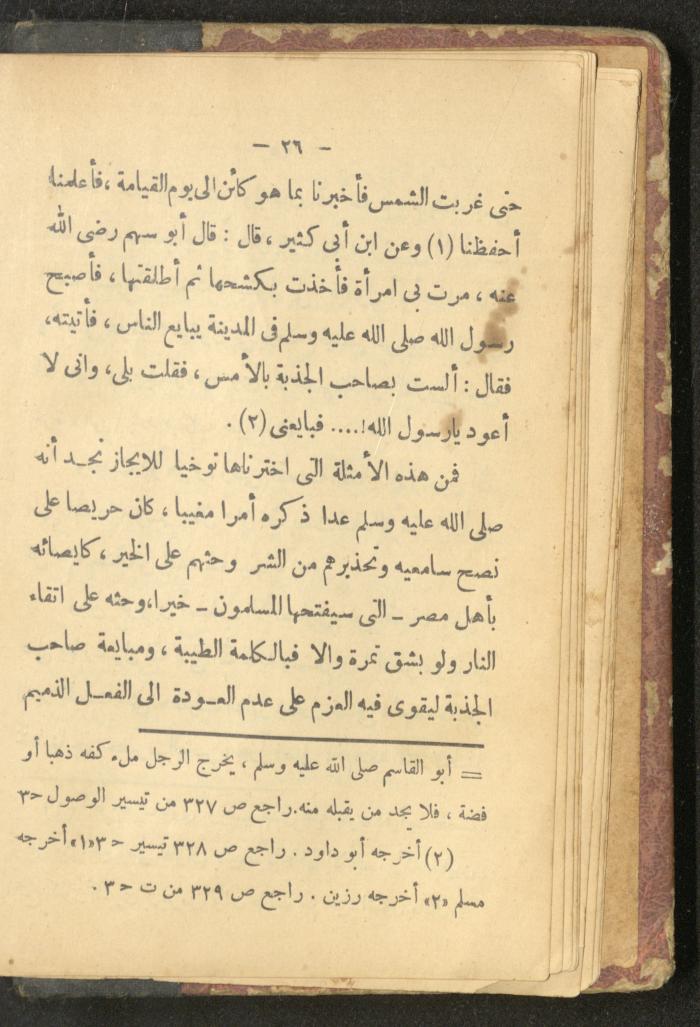 — ٢٦ —
حتى غربت الشمس فأخبرنا بما هو كائن الى يوم القيامة ، فأعلمنا
أحفظنا (١) وعن ابن أبى كثير ، قال : قال أبو سهم رضى الله
عنه ، مرت بى امرأة فأخذت بكشحها ثم أطلقتها ، فأصبح
رسول الله صلى الله عليه وسلم فى المدينة يبايع الناس ، فأتيته،
فقال : ألست بصاحب الجذبة بالأمس ، فقلت بلى ، وانى لا
أعود يارسول الله !.... فبايعنى (٢) .
فمن هذه الأمثلة التى اخترناها توخيا للايجاز نجد أنه
صلى الله عليه وسلم عدا ذكره أمرا مغيبا ، كان حريصا على
نصح سامعيه وتحذيرهم من الشر وحثهم على الخير ، كايصائه
بأهل مصر ـ التى سيفتحها المسلمون ـ خيرا،وحثه على اتقاء
النار ولو بشق تمرة والا فبالكلمة الطيبة ، ومبايعة صاحب
الجذبة ليقوى فيه العزم على عدم العودة الى الفعل الذميم
= أبو القاسم صلى الله عليه وسلم ، يخرج الرجل ملء كفه ذهبا أو
فضة ، فلا يجد من يقبله منه.راجع ص ٣٢٧ من تيسير الوصول ح٣
(٢) أخرجه أبو داود . راجع ص ٣٢٨ تيسير ح ٣«١» أخرجه
مسلم «٢» أخرجه رزين . راجع ص ٣٢٩ من ت ح ٣ .